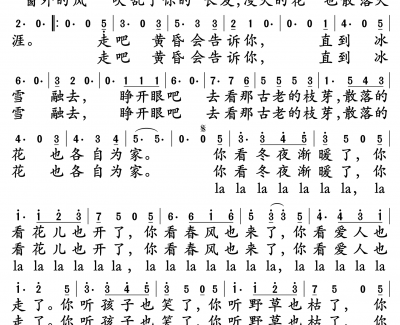 窗外的风 吹乱了你的 长发,漫天的花 也散落天
2· 0· 0 5 0 3 0 2 0 1 0 5 0· 0 1 0 4 0 5
涯。 走吧 黄昏会告诉你, 直到 冰
走吧 黄昏会告诉你, 直到 冰
6· 0· 3 2 0 1 7 0 5 0· 0 4 0 3 4 0 3 1· 5 4 3
雪 融去, 睁开眼吧 去看那古老的枝芽,散落的
雪 融去, 睁开眼吧 去看那古老的枝芽,散落的
4· 0 3 4· 3 4 5 5· 5· 0· 0 0 5 3· 3 4 3 5 1· 0 5
花 也各自为家。 你看冬夜渐暖了, 你
花 也各自为家。 你看冬夜渐暖了, 你
la la la la la la, la
1· 1 2 3 7 5 0 5 6· 6 1 5 5 3 3 5 4· 4 4 3 1
看花儿也开了, 你看春风也来了, 你看爱人也
看花儿也开了, 你看春风也来了, 你看爱人也
la la la la la la, la la la la la la, la la la la la
1· 2 0 5 3· 3 4 3 5 1· 0 5 1· 1 2 3 7 5 0 0 5
走了。你听孩子也笑了, 你听野草也枯了, 你
走了。你听孩子也笑了, 你听野草也枯了, 你